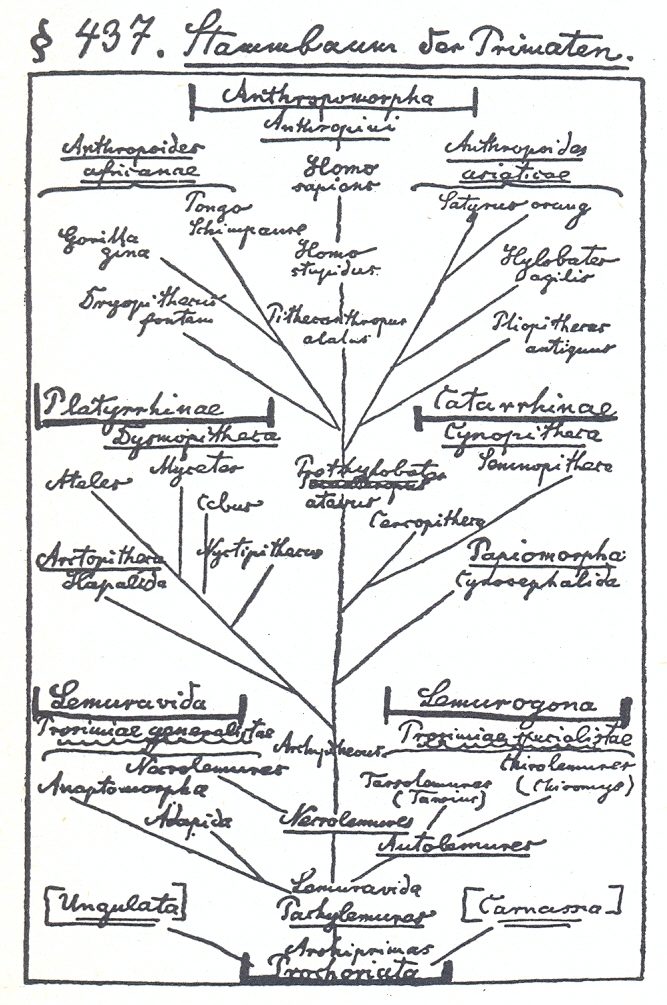 § 437. Stammbaum der Primaten.
Anthropomorpha
Anthropini
Anthropoides
africanae
Anthropoides
asiaticae
Homo
sapiens
Pongo
Schimpanse
Satyrus orang
Gorilla
gina
Homo
stupidus
Hylobates
agilis
Dryopithecus
fontani
Pithecanthropus
alalus
Pliopithecus
antiquus
Platyrrhinae
Catarrhinae
Dysmopitheca
Cynopitheca
Mycetes
Semnopitheca
Ateles
Prothylobates
atavus
Cebus
Cercopitheca
Nyctipithecus
Arctopitheca
Hapalida
Papiomorpha
Cynocephalida
Lemuravida
Lemurogona
Prosimiae generalistae
Prosimiae specialistae
Archipithecus
Necrolemures
Chirolemures
(Chiromys)
Anaptomorpha
Tarsolemures
(Tarsius)
Adapida
Necrolemures
Autolemures
Lemuravida
Pachylemures
[Ungulata]
[Carnassia]
Archiprimas
Prochoriata